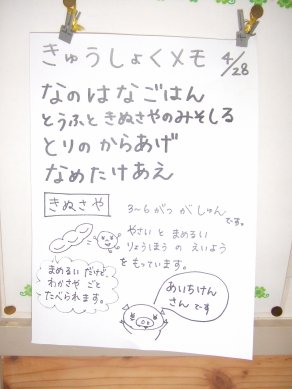 きゅうしょくメモ 4/28
なのはなごはん
とうふときぬさやのみそしる
とりのからあげ
なめたけあえ
きぬさや
3~6がつがしゅん
です。
やさいとまめるい
りょうほうのえいよう
をもっています。
まめるいだけど、
わかさやごと
たべられます。
あいちけん
さんです